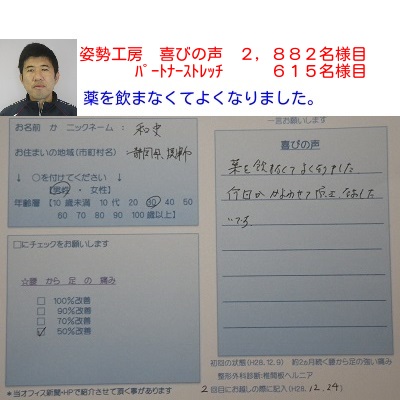 姿勢工房 喜びの声 2,882名様目
パートナーストレッチ 615名様目
薬を飲まなくてよくなりました。
お名前 か ニックネーム: 和史
お住まいの地域(市町村名)
静岡県
↓ ○を付けてください ↓
【男性 ・ 女性】
年齢層【10歳未満 10代 20 30 40 50
60 70 80 90 100歳以上】
□にチェックをお願いします
☆腰 から 足 の 痛み
□ 100%改善
□ 90%改善
□ 70%改善
☑ 50%改善
*当オフィス新聞+HPで紹介させて頂く事があります
一言お願いします
喜びの声
薬を飲まなくてよくなりました
今日
なおしたいです
初回の状態(H28.12.9) 約2ヵ月続く腰から足の強い痛み
整形外科診断:椎間板ヘルニア
2回目にお越しの際に記入(H28.12.24)